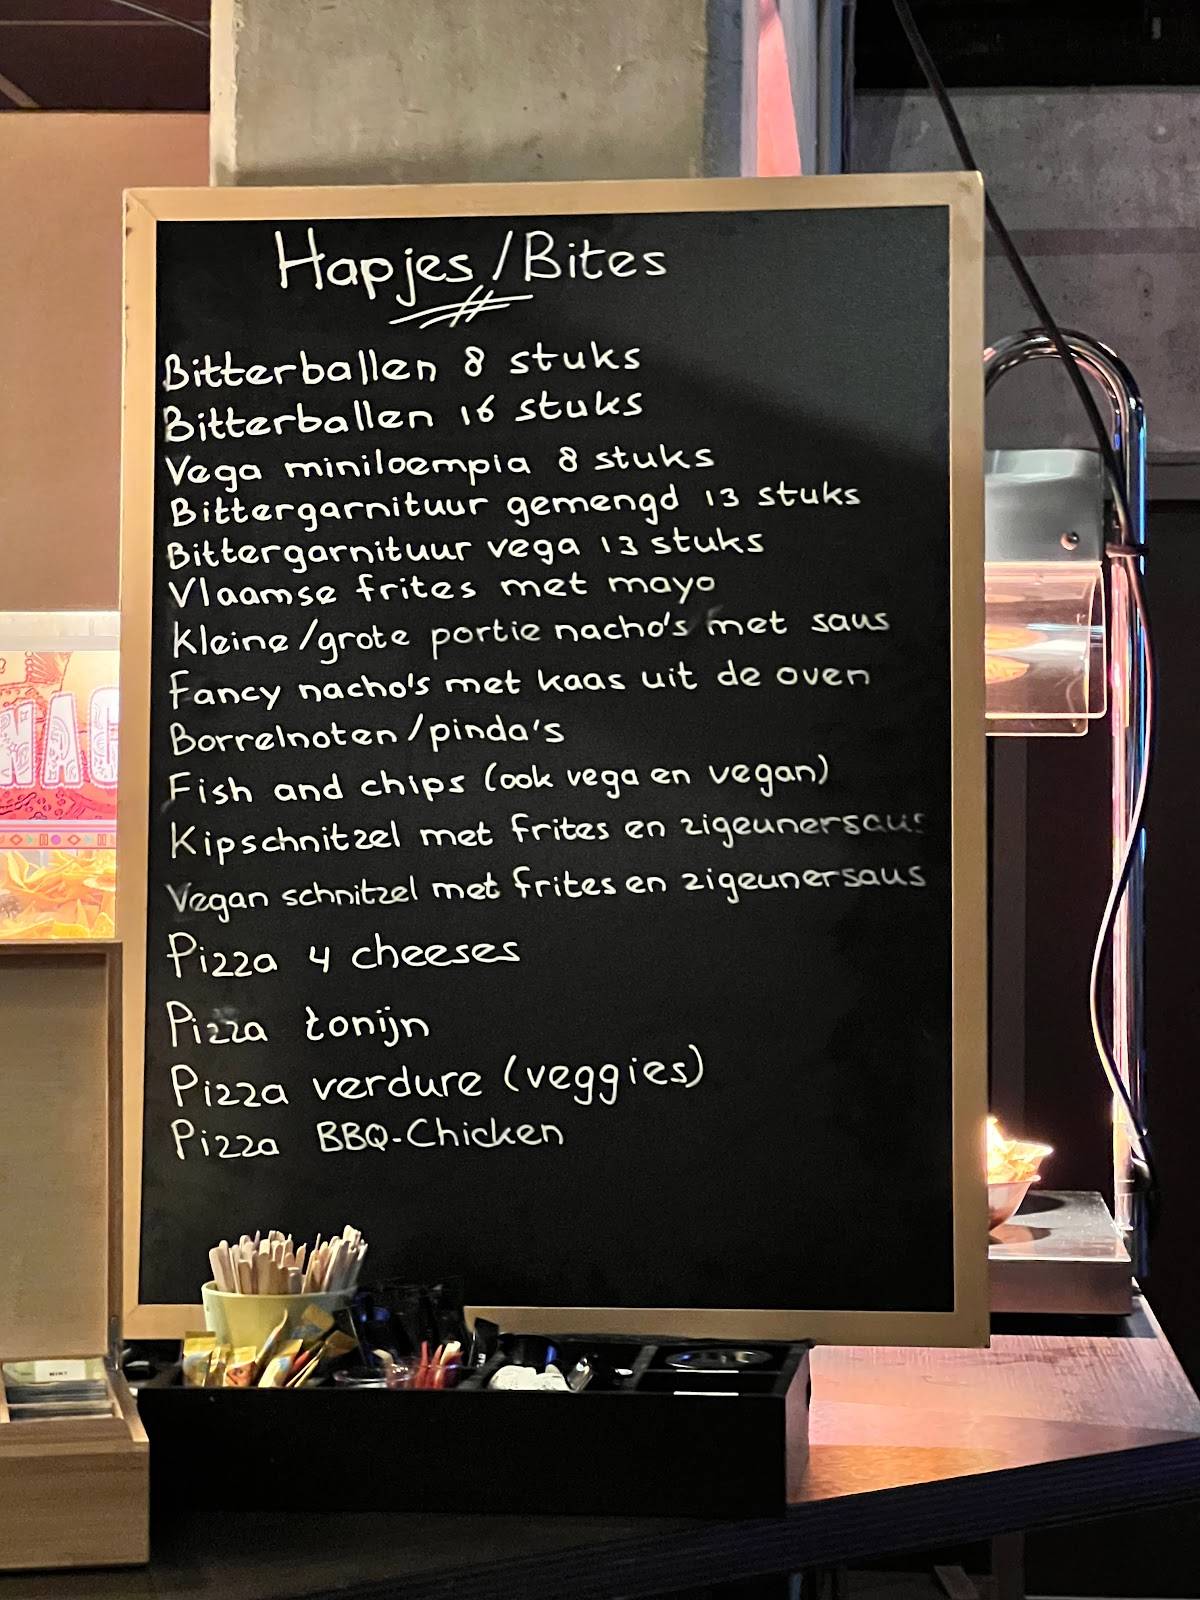 Hapjes/Bites
Bitterballen 8 stuks
Bitterballen 16 stuks
Vega miniloempia 8 stuks
Bittergarnituur gemengd 13 stuks
Bittergarnituur vega 13 stuks
Vlaamse frites met mayo
Kleine/grote portie nacho's met saus
Fancy nacho's met kaas uit de oven
Borrelnoten/pinda's
Fish and chips (ook vega en vegan)
Kipschnitzel met frites en zigeunersaus
Vegan schnitzel met frites en zigeunersaus
Pizza 4 cheeses
Pizza tonijn
Pizza verdure (veggies)
Pizza BBQ-Chicken